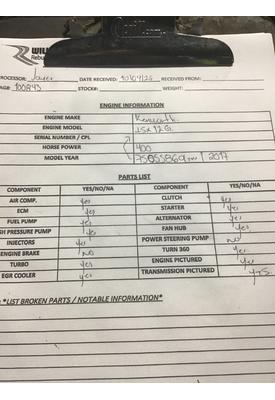 WIL
Rebu
ROCESSOR: Javier DATE RECEIVED: RECEIVED FROM:
AG#: 100843 STOCK#: WEIGHT:
ENGINE INFORMATION
ENGINE MAKE Kenworth
ENGINE MODEL ISX
SERIAL NUMBER / CPL
HORSE POWER 400
MODEL YEAR 2017
PARTS LIST
COMPONENT YES/NO/NA COMPONENT YES/NO/NA
AIR COMP. yes CLUTCH yes
ECM yes STARTER yes
FUEL PUMP yes ALTERNATOR yes
GH PRESSURE PUMP yes FAN HUB yes
INJECTORS yes POWER STEERING PUMP no
ENGINE BRAKE no TURN 360 yes
TURBO yes ENGINE PICTURED yes
EGR COOLER yes TRANSMISSION PICTURED yes
*LIST BROKEN PARTS / NOTABLE INFORMATION*